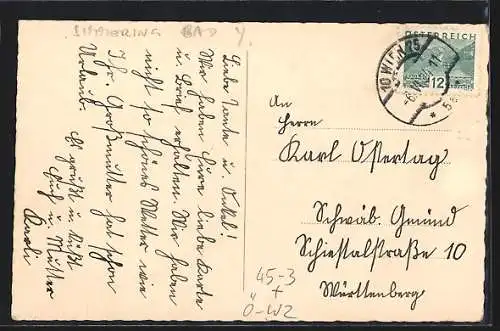 SIMMERING BAD
Liebe Tante u. Onkel!
Wir haben Eure liebe Karte
u. Brief erhalten. Wir haben
nicht so schönes Wetter wie
Ihr. Großmutter hat schon
Urlaub.
Es grüßt u. küßt
Euch u. Mutter
Karli
ÖSTERREICH
12
10 WIEN 75
An
Herrn
Karl Ostertag
Schwäb. Gmünd
Schießtalstraße 10
Württemberg
45-3
+
Ö-WZ